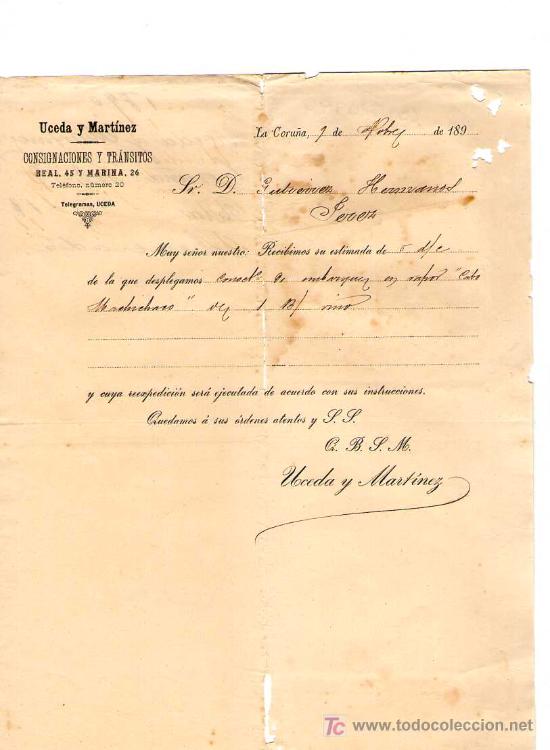 Uceda y Martínez
CONSIGNACIONES Y TRÁNSITOS
REAL, 45 Y MARINA, 26
Teléfono, número 20
Telegramas, UCEDA
La Coruña, 9 de Nobre de 189
Sr. D. Gutierrez Hermanos
Jerez
Muy señor nuestro: Recibimos su estimada de 5 d/c
de la que desplegamos conoct° de embarque en vapor "Cabo
Machichaco" de 1 B/ vino
y cuya reexpedición será ejecutada de acuerdo con sus instrucciones.
Quedamos á sus órdenes atentos y S. S.
Q. B. S. M.
Uceda y Martínez
TC www.todocoleccion.net